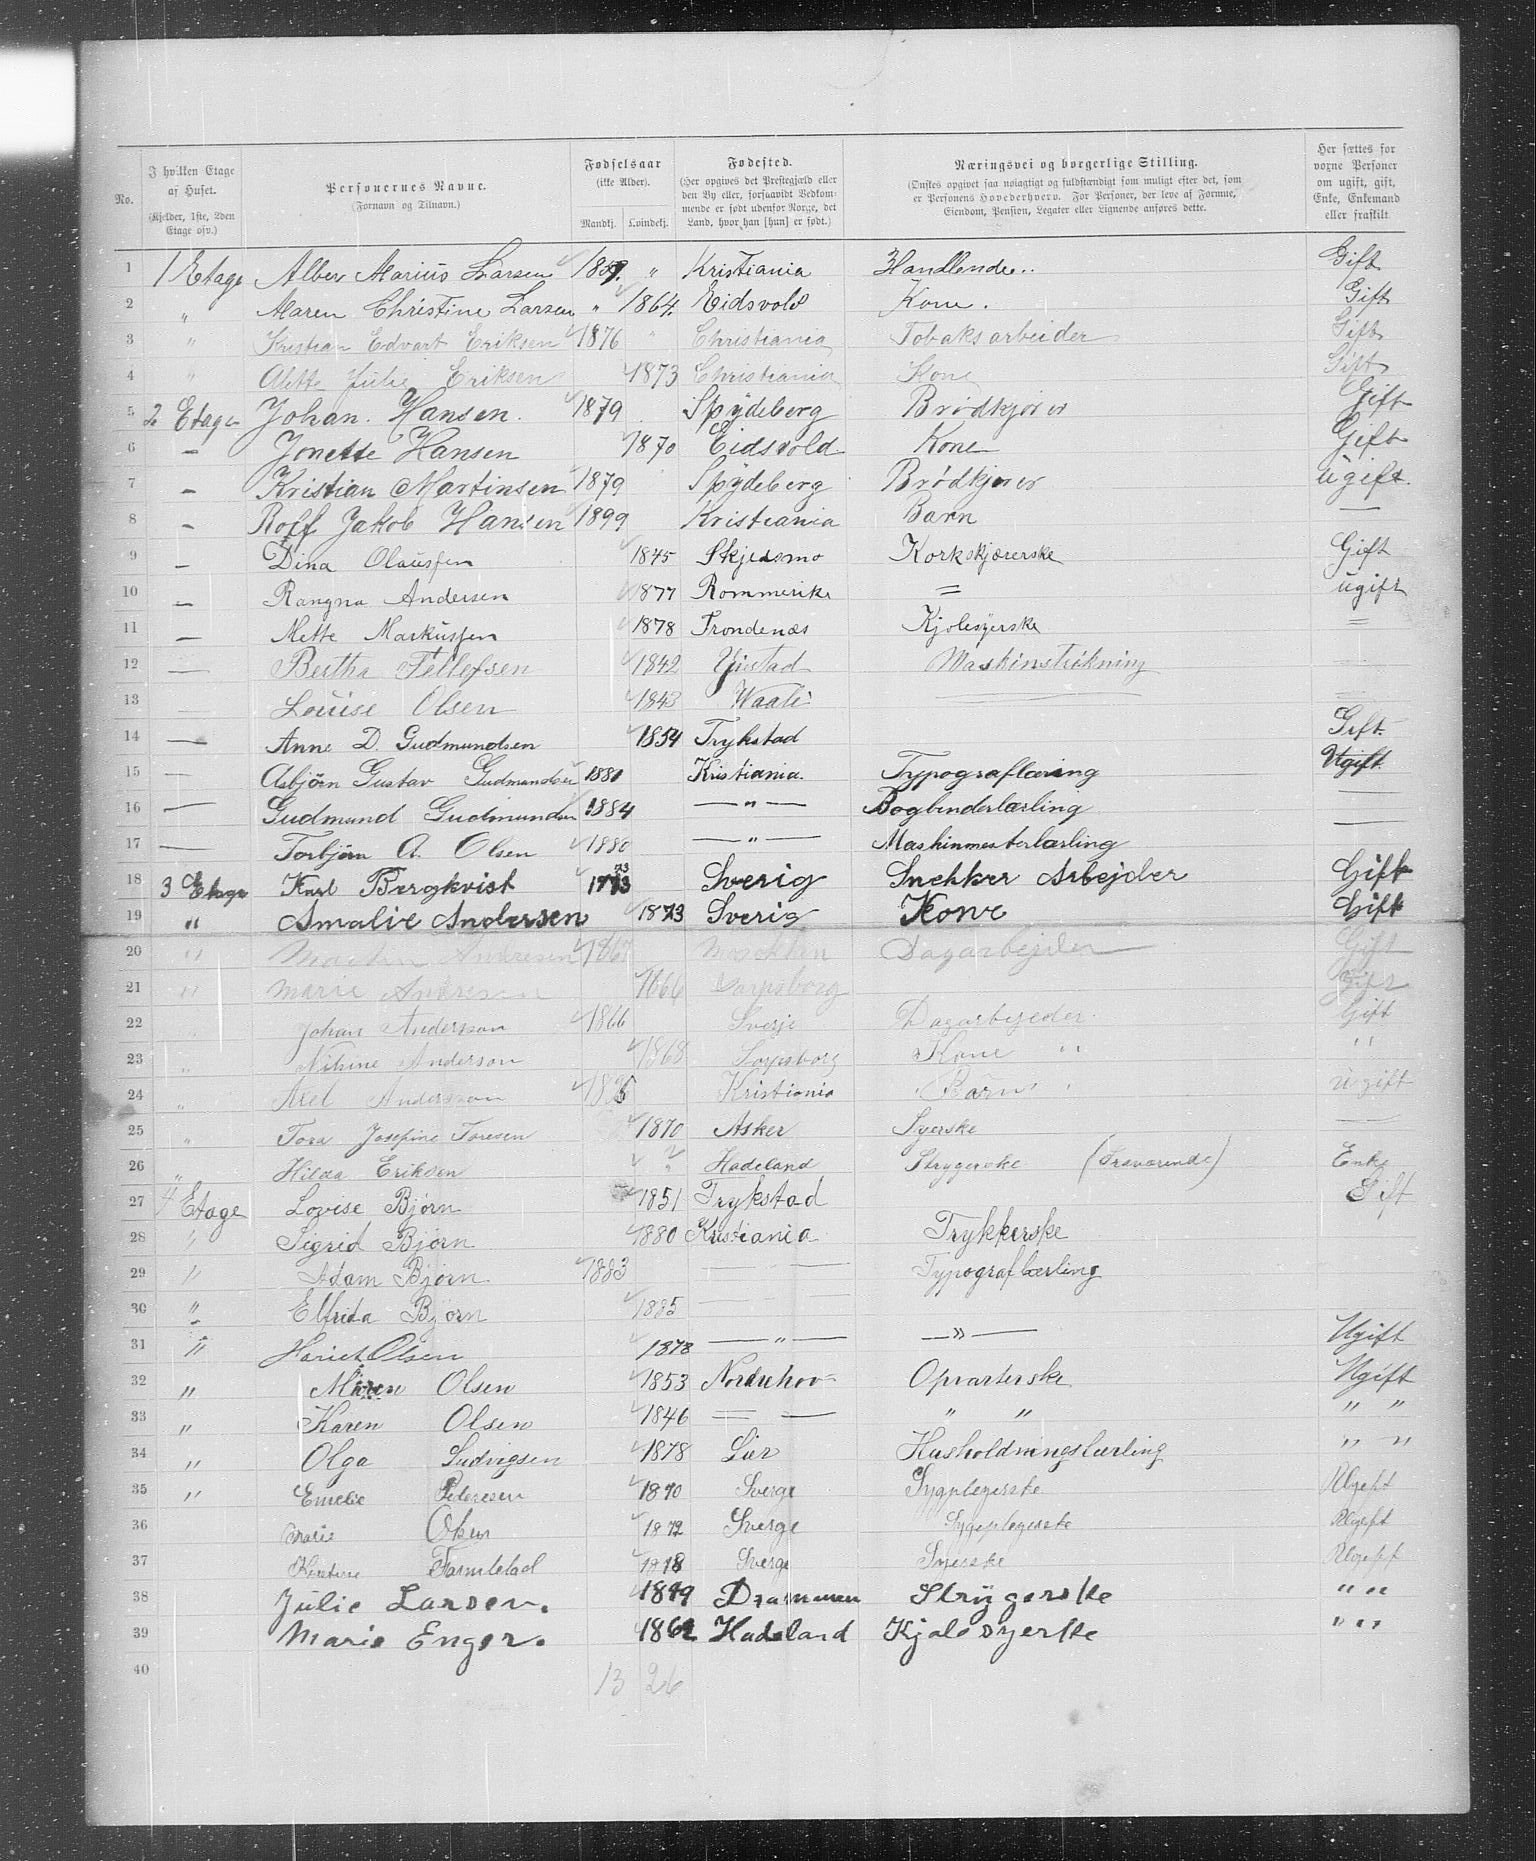 No. I hvilken Etage af Huset. (Kjelder, 1ste, 2den Etage osv.) Personernes Navne. (Fornavn og Tilnavn.) Fødselsaar (ikke Alder). Mandkj. Kvindekj. Fødested. (Her opgives det Prestegjæld eller den By eller, forsaavidt Vedkommende er født udenfor Norge, det Land, hvor han [hun] er født.) Næringsvei og borgerlige Stilling. (Ønskes opgivet saa nøiagtigt og fuldstændigt som muligt efter det, som er Personens Hovederhverv. For Personer, der leve af Formue, Eiendom, Pension, Legater eller Lignende anføres dette. Her sættes for voxne Personer om ugift, gift, Enke, Enkemand eller fraskilt
1 1 Etage Alber Marius Larsen " Kristiania Handlende.. Gift
2 " Maren Christine Larsen " 1864. Eidsvold Kone. Gift
3 " Kristian Edvart Eriksen 1876 " Christiania Tobaksarbeider Gift
4 " Alette Julie Eriksen 1873 Christiania Kone Gift
5 2 Etage Johan. Hansen. 1879 Spydeberg Brødkjører Gift
6 – Jonette Hansen 1870 Eidsvold Kone Gift
7 – Kristian Martinsen 1879 Spydeberg Brødkjører ugift.
8 – Rolf Jakob Hansen 1899 Kristiania Barn —
9 – Dina Olaussen 1845 Skjedsmo Korkskjærerske Gift
10 – Rangna Andersen 1877 Rommerike = ugift
11 — Mette Markussen 1878 Trondenæs Kjolesyerske =
12 — Bertha Tellefsen 1842 Maskinstrikning =
13 — Louise Olsen 1843 =
14 — Anne D. Gudmundsen 1854 Trykstad Gift.
15 — Asbjörn Gustav Gudmundsen 1881 Kristiania. Typograflæring Ugift
16 — Gudmund Gudmundsen 1884 — " — Bogbinderlærling —
17 — Torbjörn A. Olsen 1880 — " — Maskinmesterlærling —
18 3 Etage Karl Bergkvist 73 Sverig Snehker Arbejder Gift
19 " Amalie Andersen 1873 Sverig Kone Gift
20 " Andresen Dagarbejder Gift
21 " Marie Andresen 1666 Sarpsborg Gift
22 Johan Andersson 1866 Sverje Dagarbejeder. Gift
23 " Anderson 1868 Sarpsborg Kone " "
24 " Axel Andersson Kristiania Barn " ugift
25 " Tora Josefine Toresen 1870 Asker Syerske —
26 " Hilda Eriksen " Hadeland Strygerske (Fraværende) Enke
27 4 Etage Lovise Bjørn 1851 Trykstad Gift
28 " Sigrid Bjørn 1880 Kristiania Trykkerske
29 " Adam Bjørn 1883 — — Typograflærling
30 " Elfrida Bjørn 1885 — —
31 " Hariet Olsen 1878 — " — — " — Ugift
32 " Maren Olsen 1853 Norduhov Opvarterske Ugift
33 " Karen Olsen 1846 = — " " " "
34 " Olga Ludvigsen 1878 Lier Husholdningslærling " "
35 " Emelie Petersen 1870 Sverge Sygplegerske Ugeft
36 Marie 1872 Sverge Sygeplegerske Ugeft
37 Sverge Syerske Ugeft
38 Julie Larsen. 1849 Drammen Strygerske " "
39 Marie Enger. 1862 Hadeland Kjolesyerske " "
40 13 26